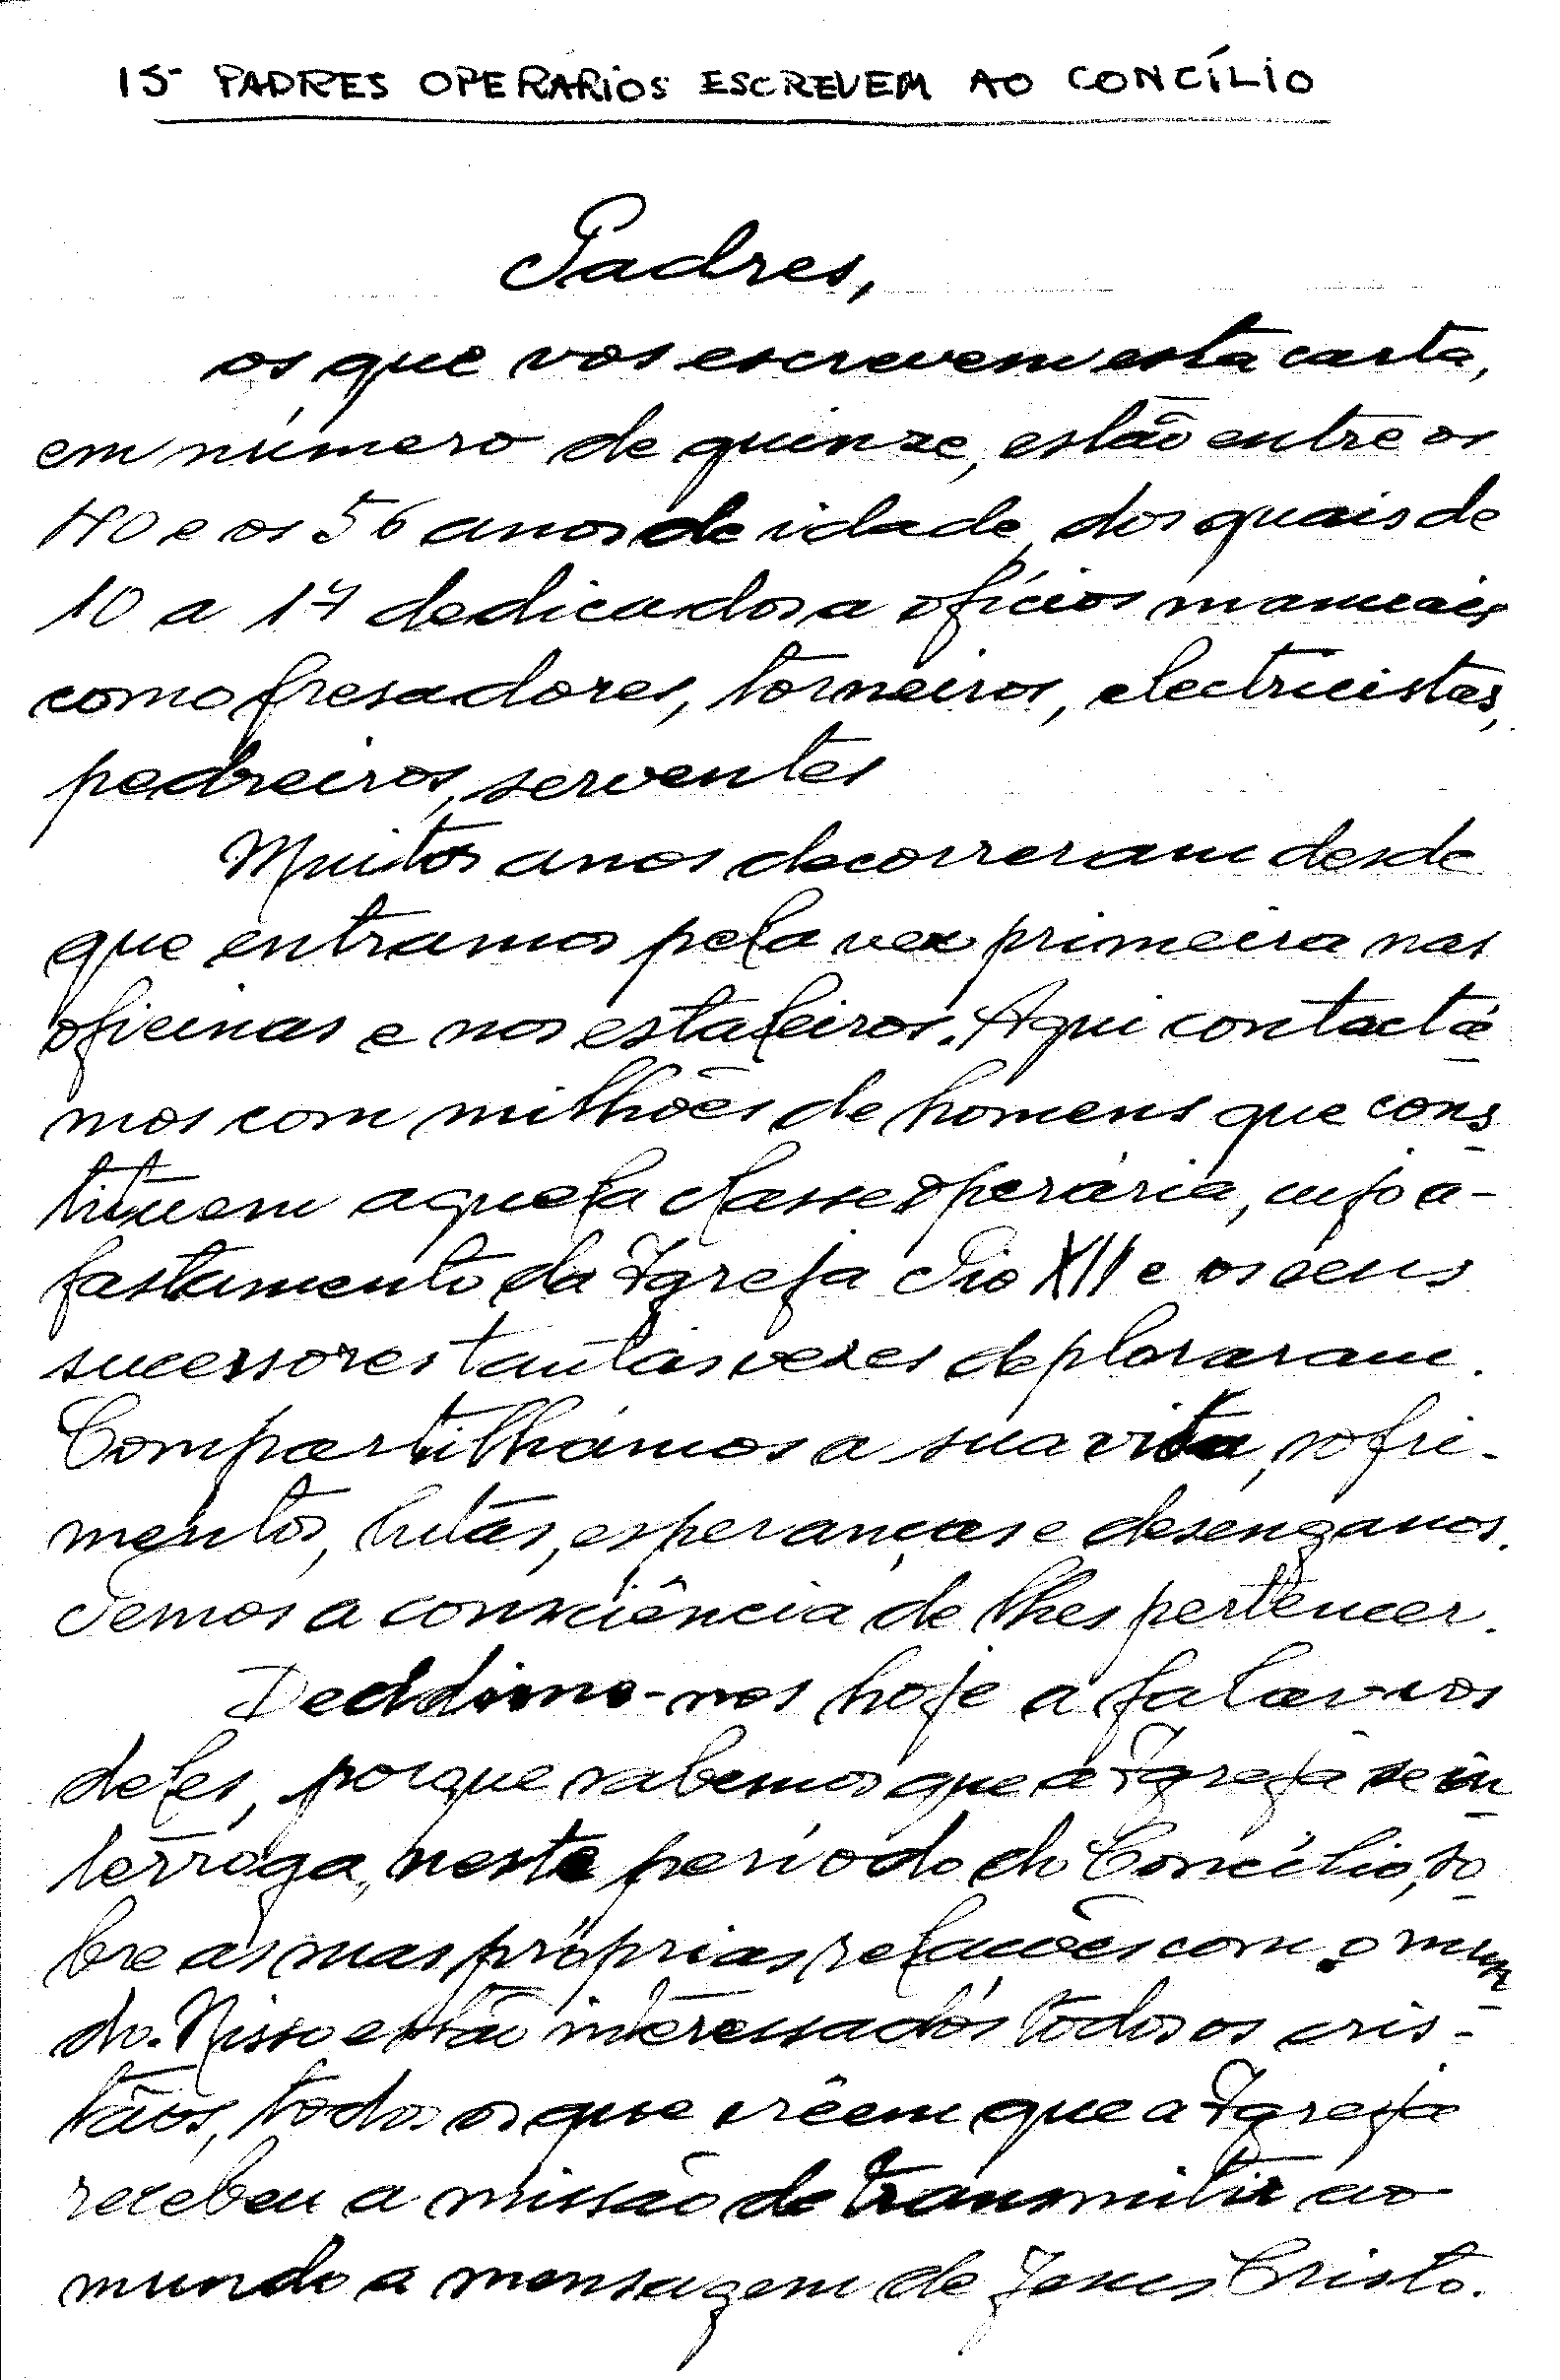 15 PADRES OPERARIOS ESCREVEM AO CONCÍLIO
Padres,
os que vos escrevem esta carta,
em número de quinze, estão entre os
40 e os 56 anos de idade, dos quais de
10 a 17 dedicados a ofícios manuais
como fresadores, torneiros, electricistas,
pedreiros, serventes
Muitos anos decorreram desde
que entramos pela vez primeira nas
oficinas e nos estaleiros. Aqui contactá
mos com milhões de homens que cons
tituem aquela classe operária, cujo a-
fastamento da Igreja Pio XII e os seus
sucessores tantas vezes deploraram.
Compartilhámos a sua vida, sofri-
mentos, lutas, esperanças e desenganos.
Temos a consciência de lhes pertencer.
Decidimo-nos hoje a falar vos
deles, porque sabemos que a Igreja se in
terroga, neste período do Concílio, so
bre as suas próprias relações com o mun
do. Nisso estão interessados todos os cris-
tãos, todos os que crêem que a Igreja
recebeu a missão de transmitir ao
mundo a mensagem de Jesus Cristo.